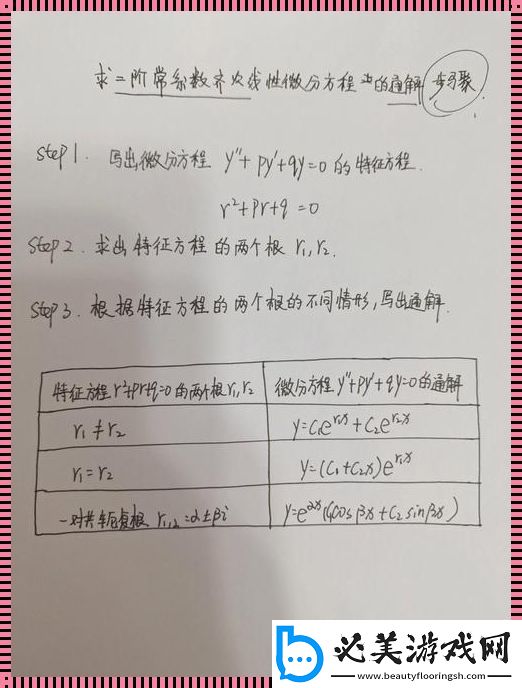 求二阶常系数齐次线性微分方程的通解 步骤
Step 1. 写出微分方程 y″+py′+qy=0 的特征方程.
r²+pr+q=0
Step 2. 求出特征方程的两个根 r₁,r₂.
Step 3. 根据特征方程的两个根的不同情形,写出通解.
特征方程 r²+pr+q=0 的两个根 r₁,r₂ 微分方程 y″+py′+qy=0 的通解
r₁≠r₂ y=C₁e^{r₁x}+C₂e^{r₂x}
r₁=r₂ y=(C₁+C₂x)e^{r₁x}
一对共轭复根 r₁,₂=α±βi y=e^{αx}(C₁cosβx+C₂sinβx)
必美游戏网
www.beautyflooringsh.com